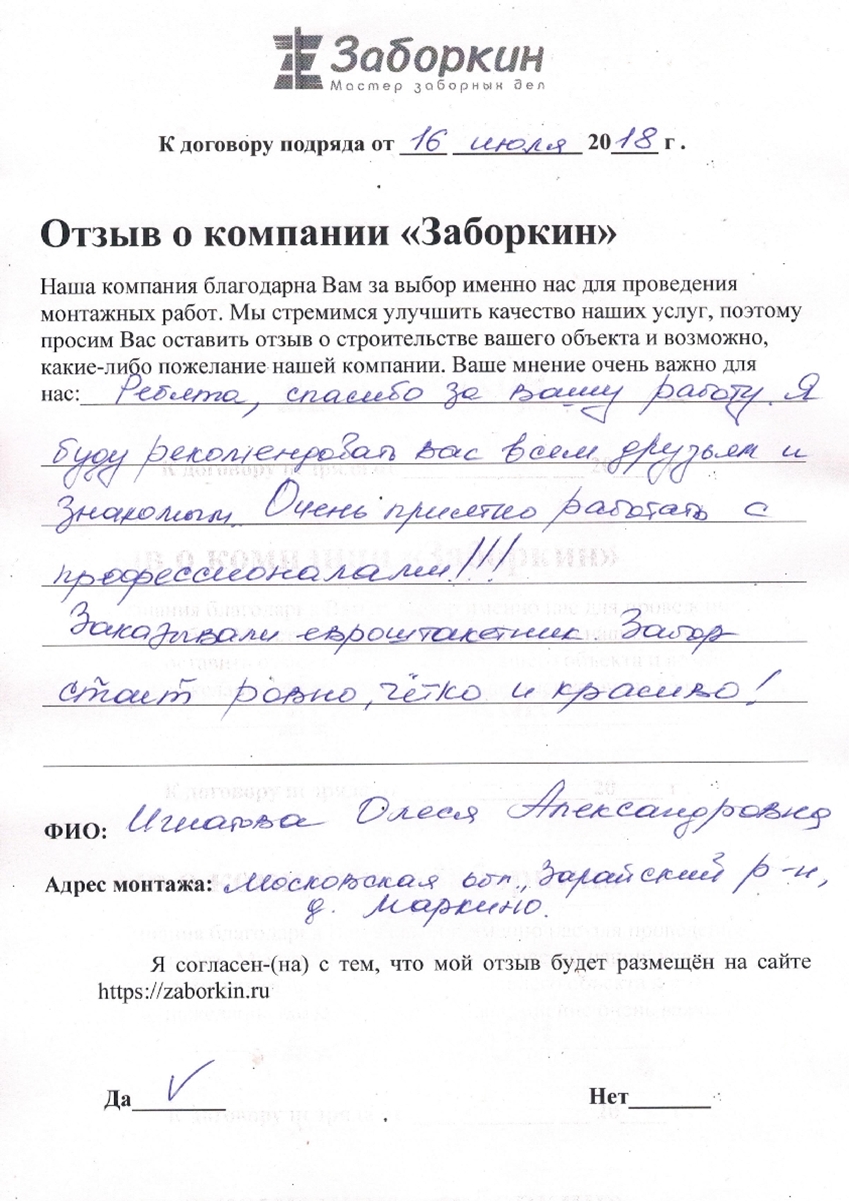 Заборкин
Мастер заборных дел
К договору подряда от 16 июля 2018 г .
Отзыв о компании «Заборкин»
Наша компания благодарна Вам за выбор именно нас для проведения
монтажных работ. Мы стремимся улучшить качество наших услуг, поэтому
просим Вас оставить отзыв о строительстве вашего объекта и возможно,
какие-либо пожелание нашей компании. Ваше мнение очень важно для
нас: Ребята, спасибо за вашу работу. Я
буду рекомендовать вас всем друзьям и
знакомым. Очень приятно работать с
профессионалами!!!
Заказывали евроштакетник Забор
стоит ровно, чётко и красиво!
ФИО: Игнатова Олеся Александровна
Адрес монтажа: Московская обл., Зарайский р-н,
д. Маркино.
Я согласен-(на) с тем, что мой отзыв будет размещён на сайте
https://zaborkin.ru
Да ✓ Нет